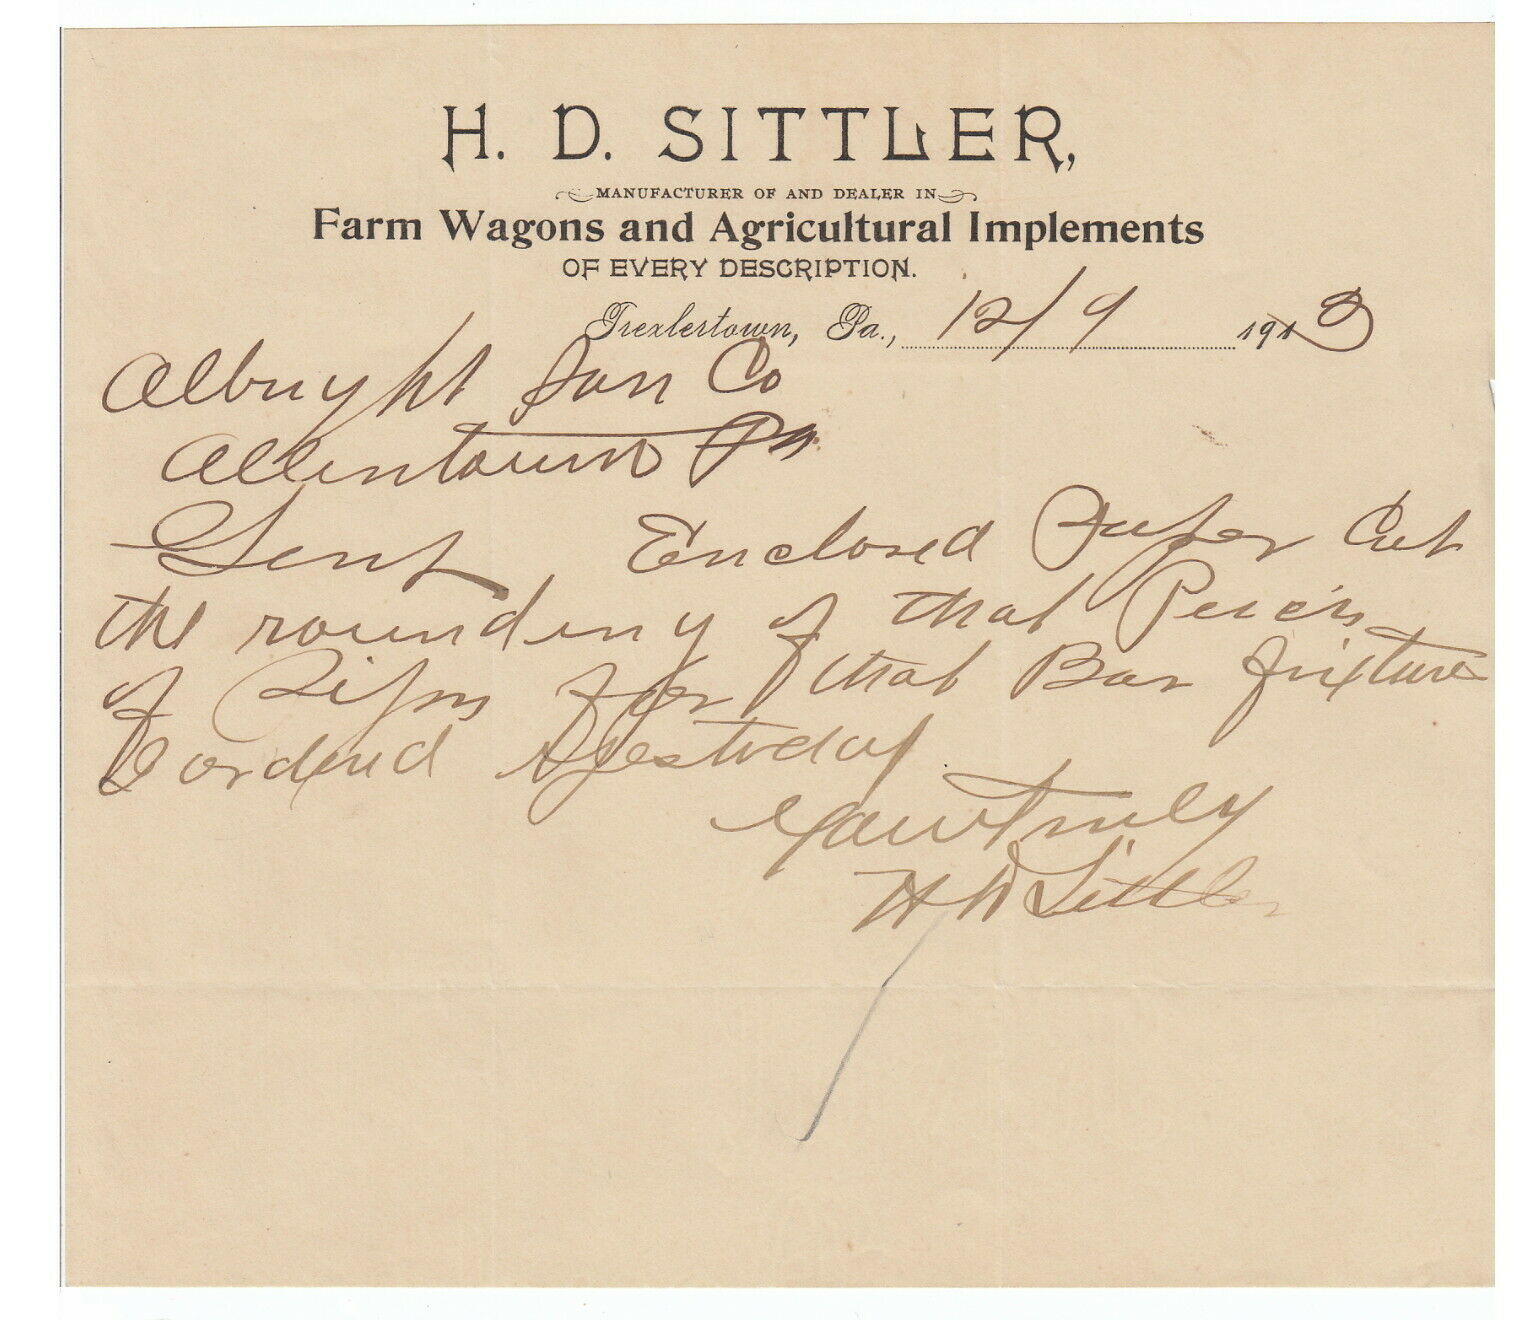 H. D. SITTLER,
MANUFACTURER OF AND DEALER IN
Farm Wagons and Agricultural Implements
OF EVERY DESCRIPTION.
Trexlertown, Pa., 12/9 1913
Albright Son Co
Allentown Pa
Gent, Enclosed Paper Cut
the rounding of that
of for that Bar fixture
I ordered yesterday
Yours Truly
H D Sittler